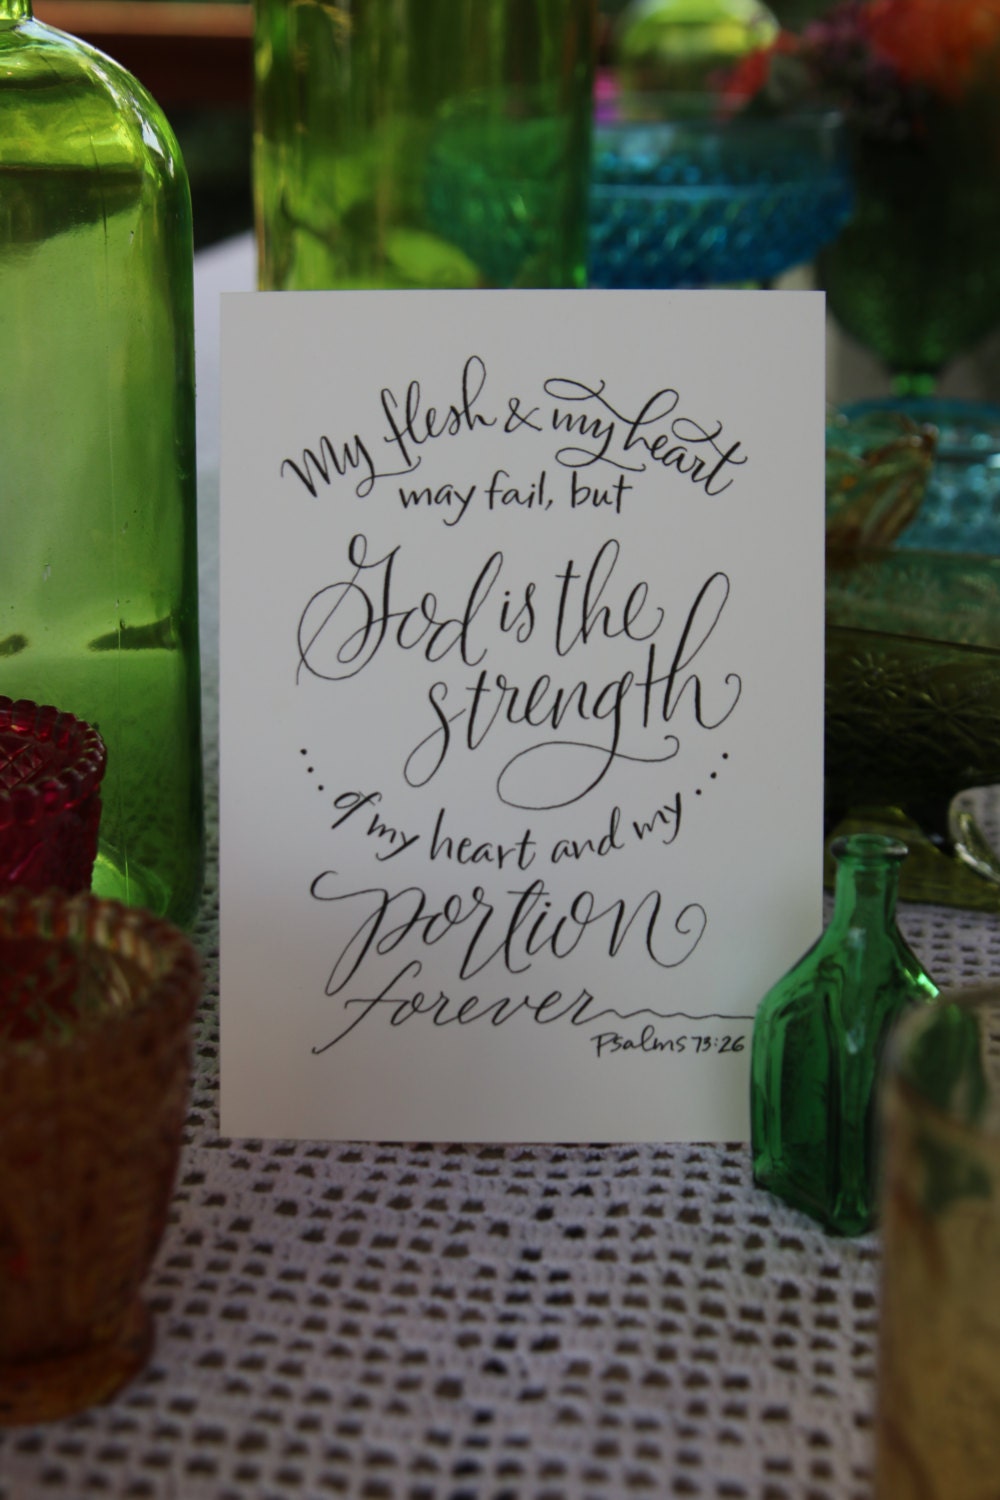 My flesh & my heart
may fail, but
God is the
strength
of my heart and my
portion
forever
Psalms 73:26